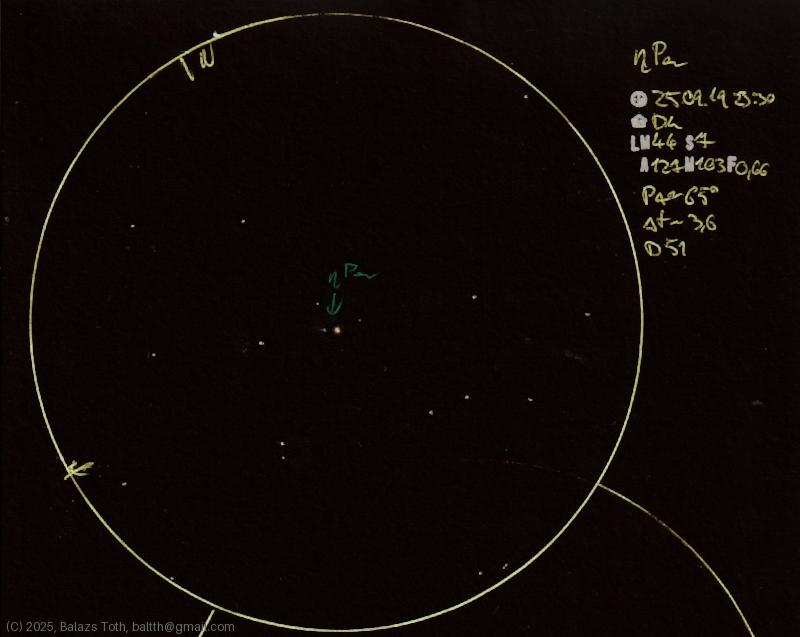 N
η Per
25.09.19 23:30
LM 4.6 S7
A127 M103 F0,66
PA~65°
Δt~3,6
D 51
η Per
(C) 2025, Balazs Toth, baltth@gmail.com